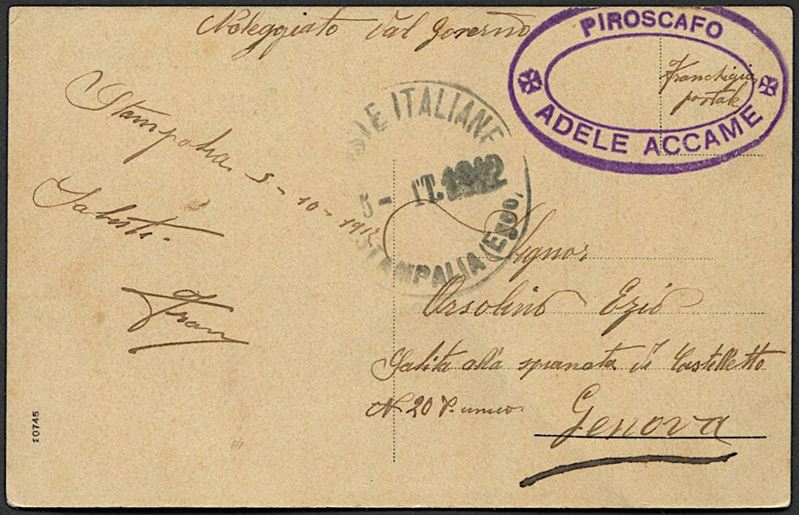 Noleggiato dal Governo
PIROSCAFO
ADELE ACCAME
Franchigia
postale
Stampalia, 5-10-1912
Saluti.
POSTE ITALIANE
5 - OTT. 1912
STAMPALIA (EGEO)
Signor
Orsolino Ezio
Salita alla spianata di Castelletto
N 20 P. unico.
Genova
20745